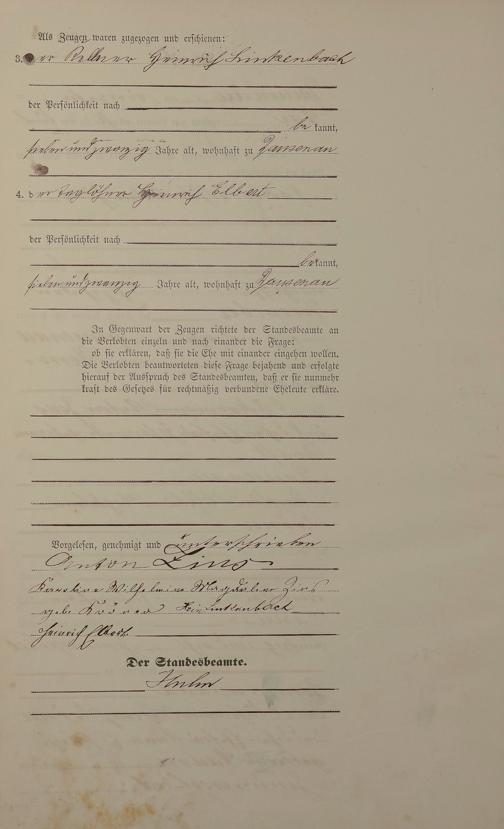 Als Zeugen waren zugezogen und erschienen:
3. der Kellner Heinrich Linkenbach
der Persönlichkeit nach
bekannt,
siebenundzwanzig Jahre alt, wohnhaft zu Dausenau
4. der Taglöhner Heinrich Elbert
der Persönlichkeit nach
bekannt,
siebenundzwanzig Jahre alt, wohnhaft zu Dausenau
In Gegenwart der Zeugen richtete der Standesbeamte an
die Verlobten einzeln und nach einander die Frage:
ob sie erklären, daß sie die Ehe mit einander eingehen wollen.
Die Verlobten beantworteten diese Frage bejahend und erfolgte
hierauf der Ausspruch des Standesbeamten, daß er sie nunmehr
kraft des Gesetzes für rechtmäßig verbundene Eheleute erkläre.
Vorgelesen, genehmigt und unterschrieben
Anton
Karoline Wilhelmine Magdalene
geb. Linkenbach
Heinrich Elbert
Der Standesbeamte.